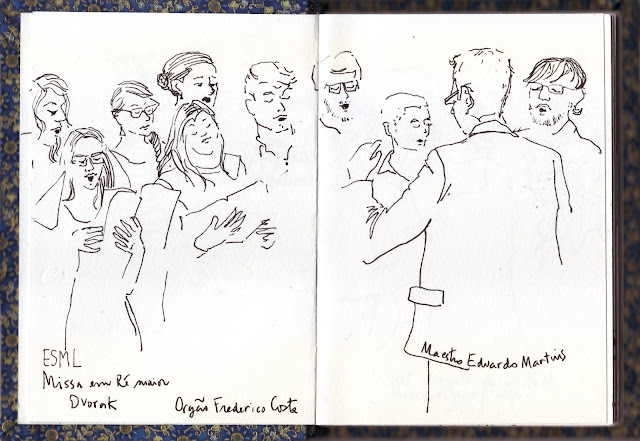 ESML
Missa em Ré maior
Dvorak
Orgão Frederico Costa
Maestro Edwardo Martins